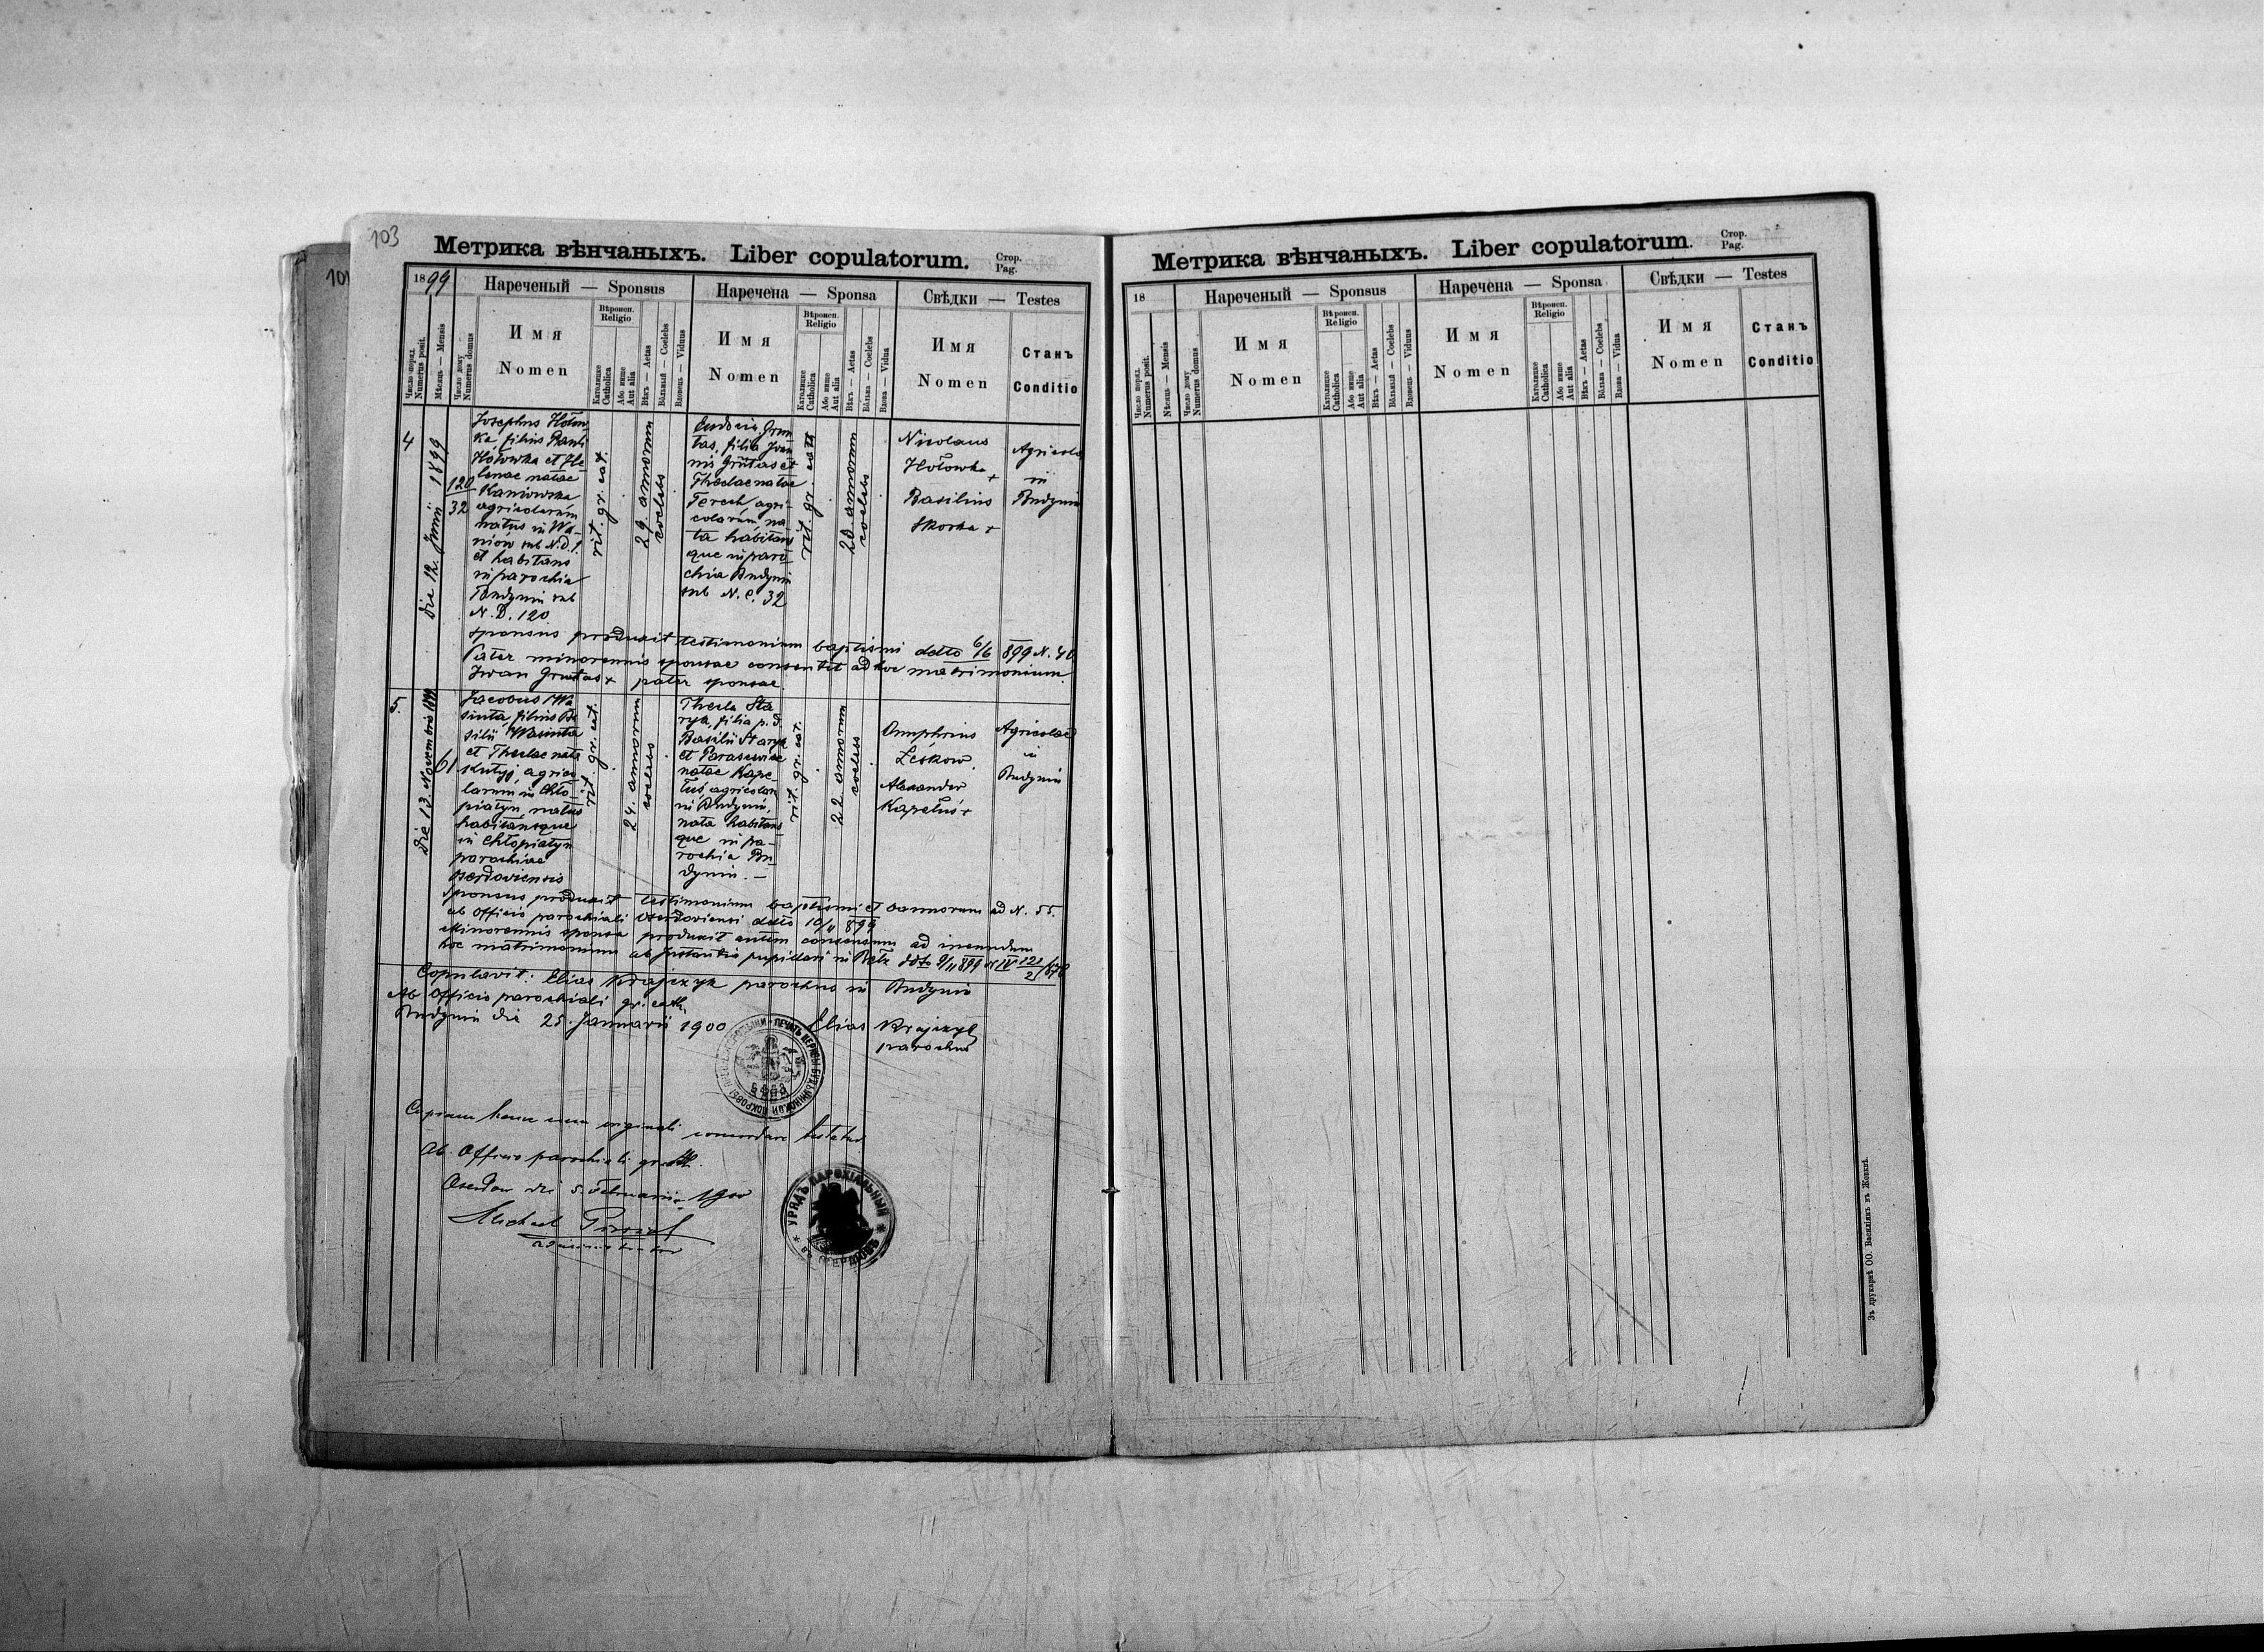 103
101
Метрика вѣнчаныхъ. Liber copulatorum.
Стор.
Pag.
1899
Нареченый — Sponsus
Наречена — Sponsa
Свѣдки — Testes
Число поряд.
Numerus posit.
Мѣсяць — Mensis
Число дому
Numerus domus
Имя
Nomen
Вѣроисп.
Religio
Католицке
Catholica
Або инше
Aut alia
Вѣкъ — Aetas
Вôльный — Coelebs
Вдовець — Viduus
Имя
Nomen
Вѣроисп.
Religio
Католицке
Catholica
Або инше
Aut alia
Вѣкъ — Aetas
Вôльна — Coelebs
Вдова — Vidua
Имя
Nomen
Станъ
Conditio
4
Die 12. Junii 1899
120
32
Josephus Hołow-
ka, filius Pauli
Hołowka et He-
lenae natae
Kaniowska
agricolarum
natus in Wa-
niow sub N.D. 1.
et habitans
in parochia
Budynin sub
N. D. 120
rit. gr. cat.
29. annorum
coelebs
Eudoxia Grun-
tas, filia Joan-
nis Gruntas et
Theclae natae
Terech, agri-
colarum, na-
ta habitans-
que in paro-
chia Budynin
sub N. C. 32
rit. gr. cath
20. annorum
coelebs
Nicolaus
Hołowka +
Basilius
Skorka +
Agricolae
in
Budynin
Sponsus produxit testimonium baptismi ddto 6/6 899 N. 40
Pater minorennis sponsae consentit ad hoc matrimonium.
Iwan Gruntas + pater sponsae
5.
Die 13. Novembris 1899
61
Jacobus
filius Ba-
silii
et Theclae nata
agrico-
larum in Chło-
piatyn, natus
habitansque
in Chłopiatyn
parochiae
Oserdoviensis
rit. gr. cat.
24. annorum
coelebs
Thecla Sta-
ryk, filia p. d.
Basilii Staryk
et Parasceviae
natae Kape-
luś, agricolar.
in Budynin,
nata habitans-
que in pa-
rochia Bu-
dynin. —
rit. gr. cat.
22. annorum
coelebs
Onuphrius
Leskow
Alexander
Kapeluś +
Agricolae
in
Budynin
Sponsus produxit testimonium baptismi et bannorum ad N. 55.
ab Officio parochiali Oserdoviensi ddto 10/11 899
Minorennis sponsa produxit autem consensum ad ineundum
hoc matrimonium ab Instantia pupillari in Bełz ddto 9/11 899 N IV 121/2
Copulavit: Elias Krajczyk parochus in Budynin
Ab Officio parochiali gr. cath.
Budynin die 25. Januarii 1900
Elias Krajczyk
parochus
Copiam hanc cum originali concordare testatur
Ab Officio parochiali gr. cath.
Oserdow die 5. Februarii 1900
Michael
administrator
УРЯДЪ ПАРОХІАЛЬНЫЙ
Метрика вѣнчаныхъ. Liber copulatorum.
Стор.
Pag.
18
Нареченый — Sponsus
Наречена — Sponsa
Свѣдки — Testes
Число поряд.
Numerus posit.
Мѣсяць — Mensis
Число дому
Numerus domus
Имя
Nomen
Вѣроисп.
Religio
Католицке
Catholica
Або инше
Aut alia
Вѣкъ — Aetas
Вôльный — Coelebs
Вдовець — Viduus
Имя
Nomen
Вѣроисп.
Religio
Католицке
Catholica
Або инше
Aut alia
Вѣкъ — Aetas
Вôльна — Coelebs
Вдова — Vidua
Имя
Nomen
Станъ
Conditio
Зъ друкарнѣ ОО. Василіянъ въ Жовквѣ.